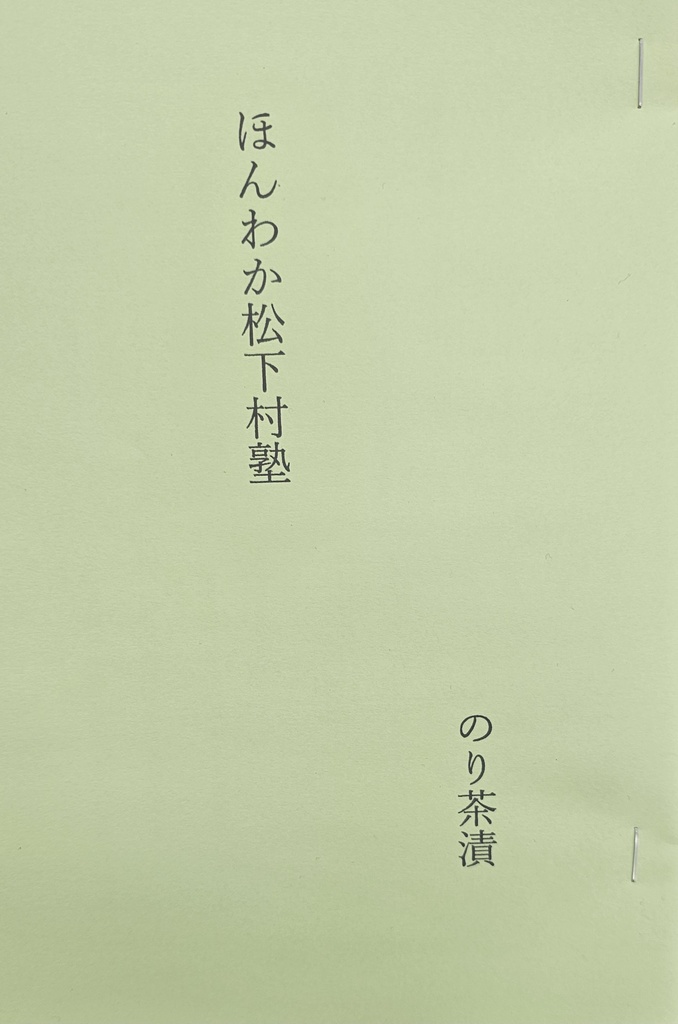 ほんわか松下村塾
のり茶漬